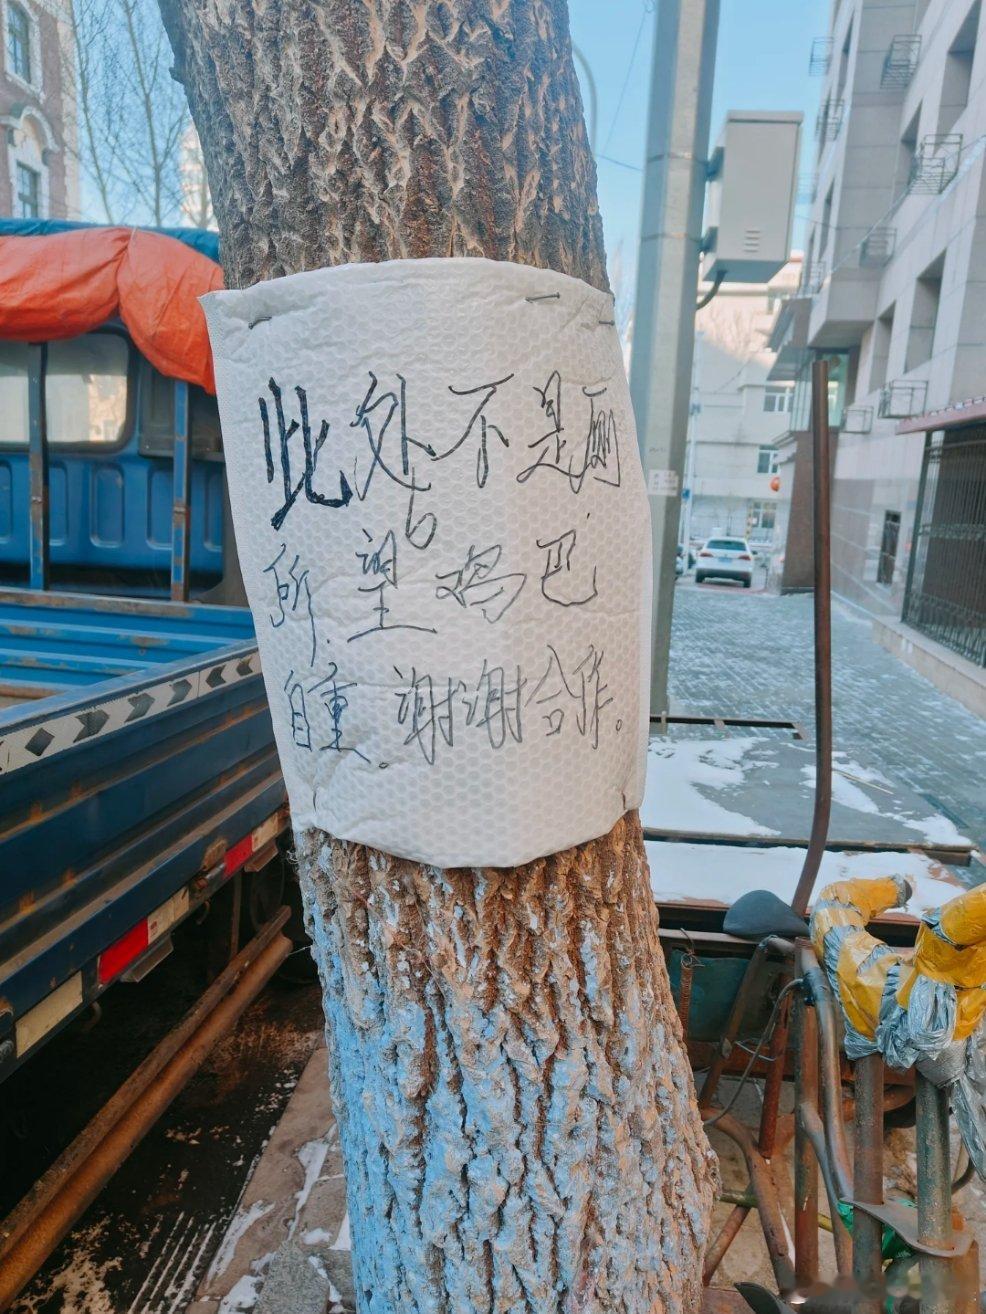 此处不是厕
所.望鸡巴
自重.谢谢合作。